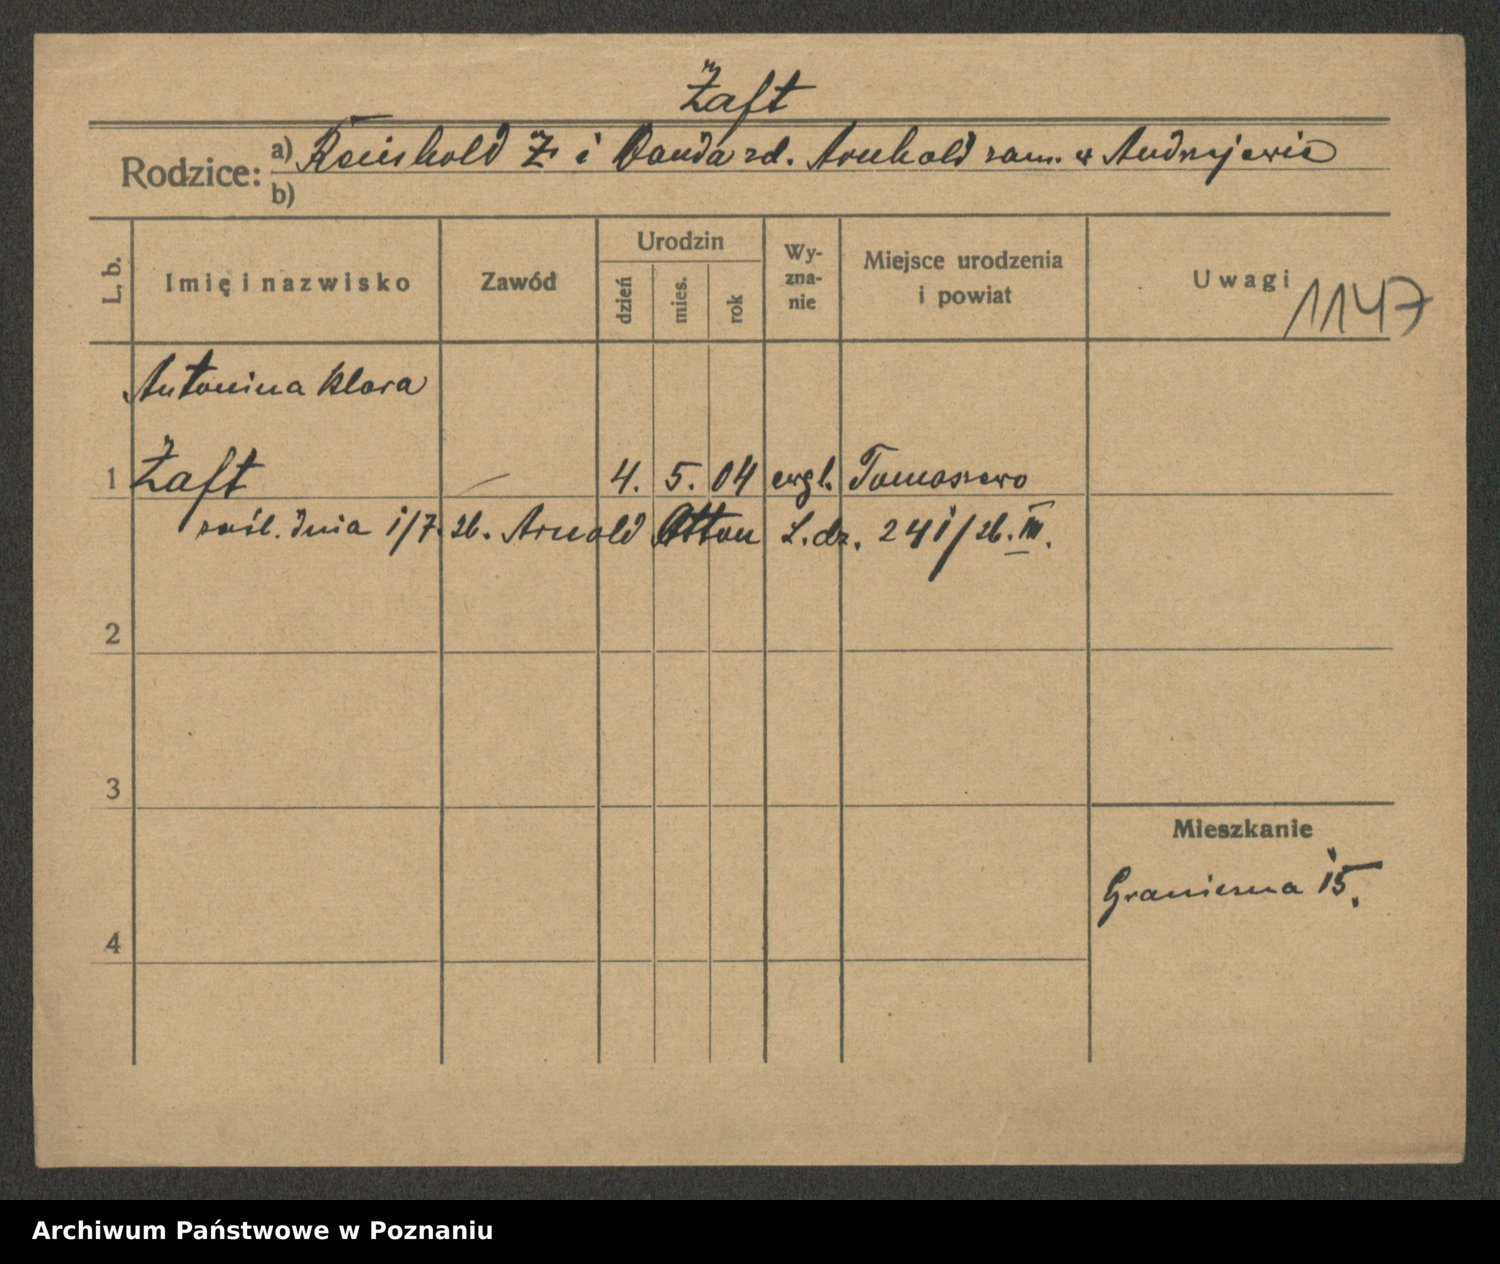 Żaft
Rodzice: a) Reinhold Ż i Wanda zd. Arnhold zam. w Andrzejewie
b)
L. b. Imię i nazwisko Zawód Urodzin dzień mies. rok Wy-zna-nie Miejsce urodzenia i powiat Uwagi 1147
Antonina Klara
1 Żaft — 4. 5. 04 ewgl. Tomaszewo
zaśl. dnia 1/7. 26. Arnold Otton L.dz. 241/26. III.
2
3
Mieszkanie
Graniczna 15.
4
Archiwum Państwowe w Poznaniu